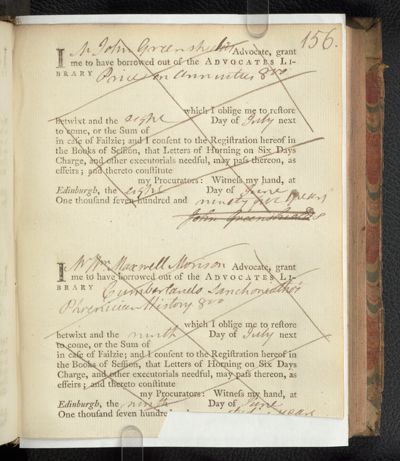 156.
I Mr John Greenshields Advocate, grant
me to have borrowed out of the ADVOCATES LI-
BRARY Price on Annuities 8vo
which I oblige me to reſtore
betwixt and the eight Day of July next
to come, or the Sum of
in caſe of Failzie; and I conſent to the Regiſtration hereof in
the Books of Seſſion, that Letters of Horning on Six Days
Charge, and other executorials needful, may paſs thereon, as
effeirs; and thereto conſtitute
my Procurators: Witneſs my hand, at
Edinburgh, the eight Day of June
One thouſand ſeven hundred and ninety five years
John Greenshields
I Mr Wm Maxwell Morison Advocate, grant
me to have borrowed out of the ADVOCATES LI-
BRARY Cumberlands Sanchoniatho's
Phoenician History 8vo
which I oblige me to reſtore
betwixt and the ninth Day of July next
to come, or the Sum of
in caſe of Failzie; and I conſent to the Regiſtration hereof in
the Books of Seſſion, that Letters of Horning on Six Days
Charge, and other executorials needful, may paſs thereon, as
effeirs; and thereto conſtitute
my Procurators: Witneſs my hand, at
Edinburgh, the ninth Day of June
One thouſand ſeven hundred years